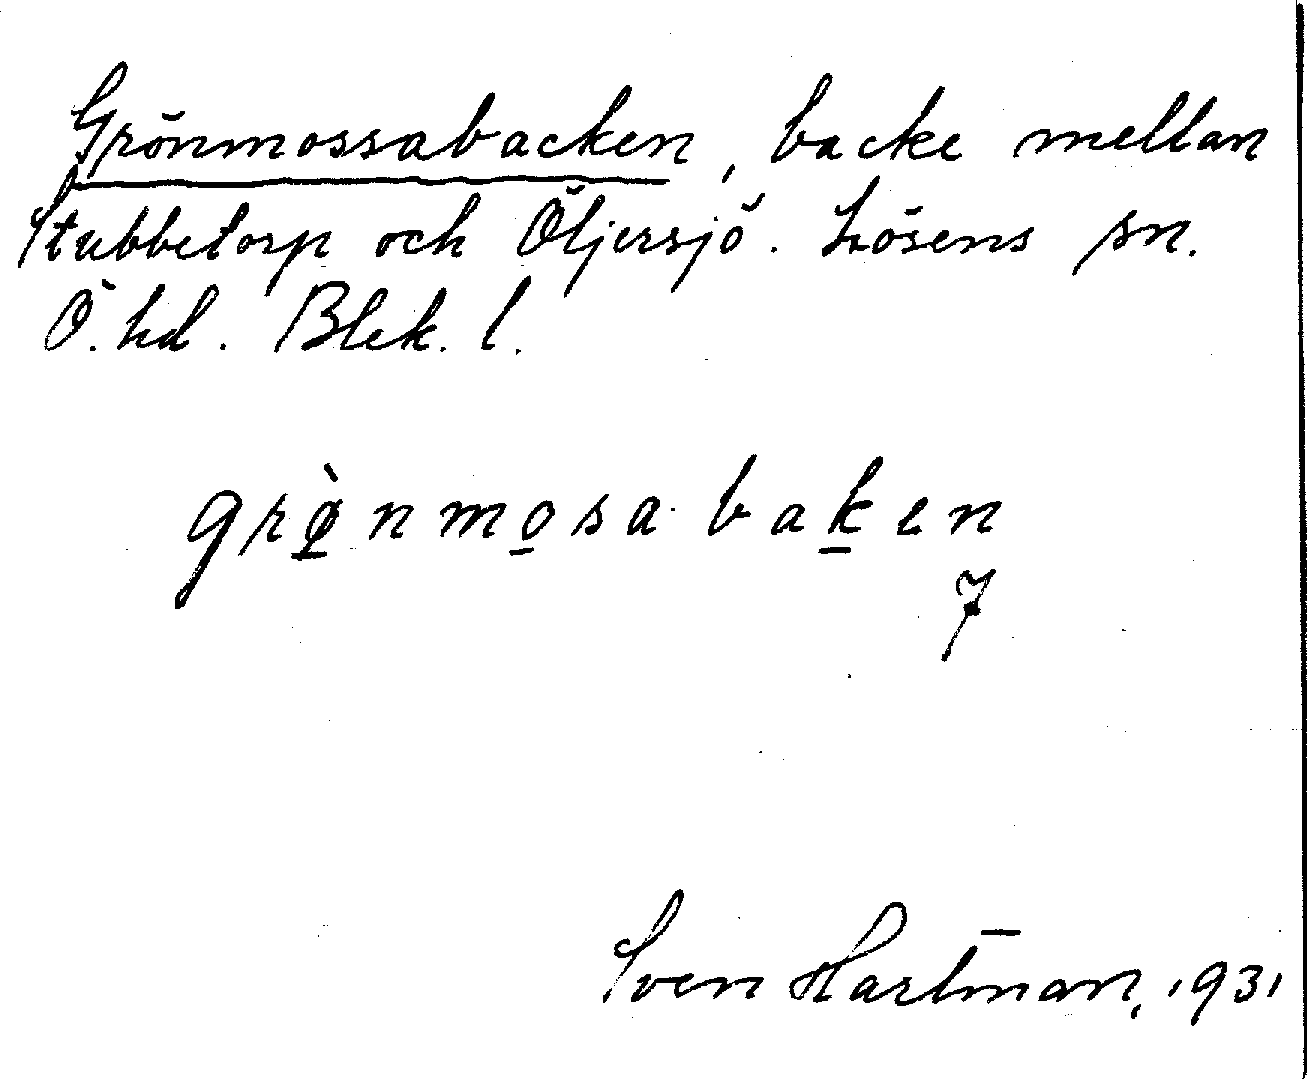 Grönmossabacken, backe mellan
Stubbetorp och Öljersjö. Lösens sn.
Ö. hd. Blek. l.
grø̀nmosa baken
7
Sven Hartman, 1931